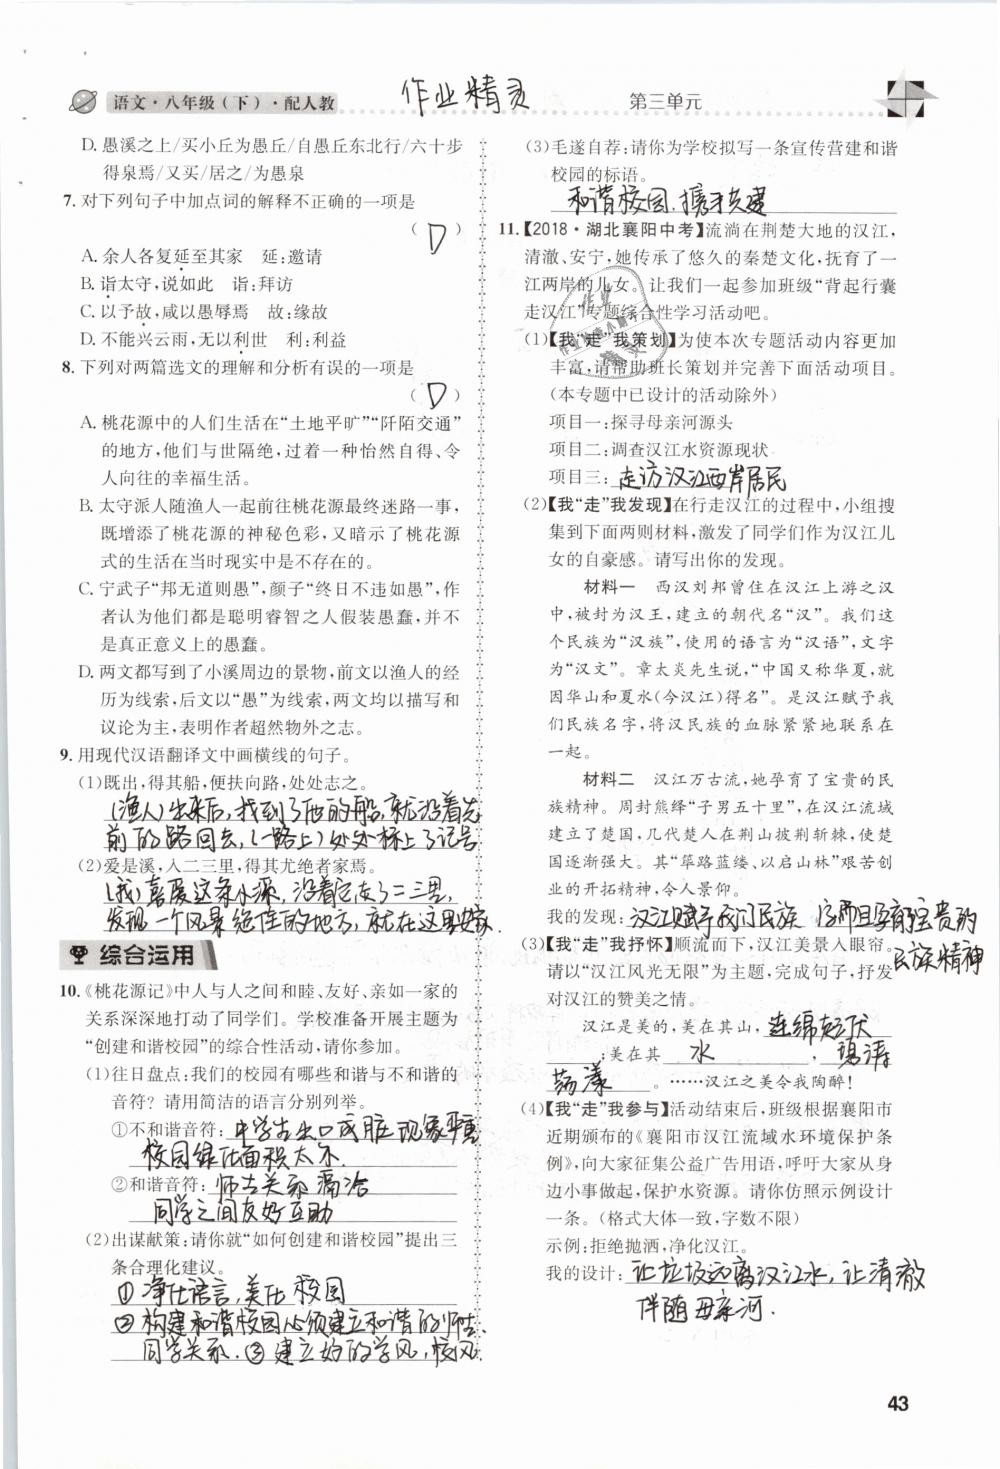 语文·八年级(下)·配人教
作业精灵
第三单元
D. 愚溪之上/买小丘为愚丘/自愚丘东北行/六十步
得泉焉/又买/居之/为愚泉
7. 对下列句子中加点词的解释不正确的一项是
( D )
A. 余人各复延至其家 延:邀请
B. 诣太守,说如此 诣:拜访
C. 以予故,咸以愚辱焉 故:缘故
D. 不能兴云雨,无以利世 利:利益
8. 下列对两篇选文的理解和分析有误的一项是
( D )
A. 桃花源中的人们生活在“土地平旷”“阡陌交通”
的地方,他们与世隔绝,过着一种怡然自得、令
人向往的幸福生活。
B. 太守派人随渔人一起前往桃花源最终迷路一事,
既增添了桃花源的神秘色彩,又暗示了桃花源
式的生活在当时是不存在的。
C. 宁武子“邦无道则愚”,颜子“终日不违如愚”,作
者认为他们都是聪明睿智之人假装愚蠢,并不
是真正意义上的愚蠢。
D. 两文都写到了小溪周边的景物,前文以渔人的经
历为线索,后文以“愚”为线索,两文均以描写和
议论为主,表明作者超然物外之志。
9. 用现代汉语翻译文中画横线的句子。
(1)既出,得其船,便扶向路,处处志之。
(渔人)出来后,找到了他的船,就沿着先
前的路回去,(一路上)处处标上了记号
(2)爱是溪,入二三里,得其尤绝者家焉。
(我)喜爱这条小源,沿着它走了二三里,
发现一个风景绝佳的地方,就在这里安家.
综合运用
10.《桃花源记》中人与人之间和睦、友好、亲如一家的
关系深深地打动了同学们。学校准备开展主题为
“创建和谐校园”的综合性活动,请你参加。
(1)往日盘点:我们的校园有哪些和谐与不和谐的
音符?请用简洁的语言分别列举。
①不和谐音符:中学生出口成脏现象严重
校园绿化面积太小.
②和谐音符:师生关系融洽
同学之间友好互助
(2)出谋献策:请你就“如何创建和谐校园”提出三
条合理化建议。
① 净化语言,美化校园
② 构建和谐校园必须建立和谐的师生、
同学关系.③建立好的学风,校风.
(3)毛遂自荐:请你为学校拟写一条宣传营建和谐
校园的标语。
和谐校园,携手共建
11.【2018·湖北襄阳中考】流淌在荆楚大地的汉江,
清澈、安宁,她传承了悠久的秦楚文化,抚育了一
江两岸的儿女。让我们一起参加班级“背起行囊
走汉江”专题综合性学习活动吧。
(1)【我“走”我策划】为使本次专题活动内容更加
丰富,请帮助班长策划并完善下面活动项目。
(本专题中已设计的活动除外)
项目一:探寻母亲河源头
项目二:调查汉江水资源现状
项目三:走访汉江两岸居民
(2)【我“走”我发现】在行走汉江的过程中,小组搜
集到下面两则材料,激发了同学们作为汉江儿
女的自豪感。请写出你的发现。
材料一 西汉刘邦曾住在汉江上游之汉
中,被封为汉王,建立的朝代名“汉”。我们这
个民族为“汉族”,使用的语言为“汉语”,文字
为“汉文”。章太炎先生说,“中国又称华夏,就
因华山和夏水(今汉江)得名”。是汉江赋予我
们民族名字,将汉民族的血脉紧紧地联系在
一起。
材料二 汉江万古流,她孕育了宝贵的民
族精神。周封熊绎“子男五十里”,在汉江流域
建立了楚国,几代楚人在荆山披荆斩棘,使楚
国逐渐强大。其“筚路蓝缕、以启山林”艰苦创
业的开拓精神,令人景仰。
我的发现:汉江赋予我们民族 而且孕育宝贵的
民族精神
(3)【我“走”我抒怀】顺流而下,汉江美景入眼帘。
请以“汉江风光无限”为主题,完成句子,抒发
对汉江的赞美之情。
汉江是美的,美在其山,连绵起伏
;美在其 水 , 碧涛
荡漾 。……汉江之美令我陶醉!
(4)【我“走”我参与】活动结束后,班级根据襄阳市
近期颁布的《襄阳市汉江流域水环境保护条
例》,向大家征集公益广告用语,呼吁大家从身
边小事做起,保护水资源。请你仿照示例设计
一条。(格式大体一致,字数不限)
示例:拒绝抛洒,净化汉江。
我的设计:让垃圾远离汉江水,让清澈
伴随母亲河.
43